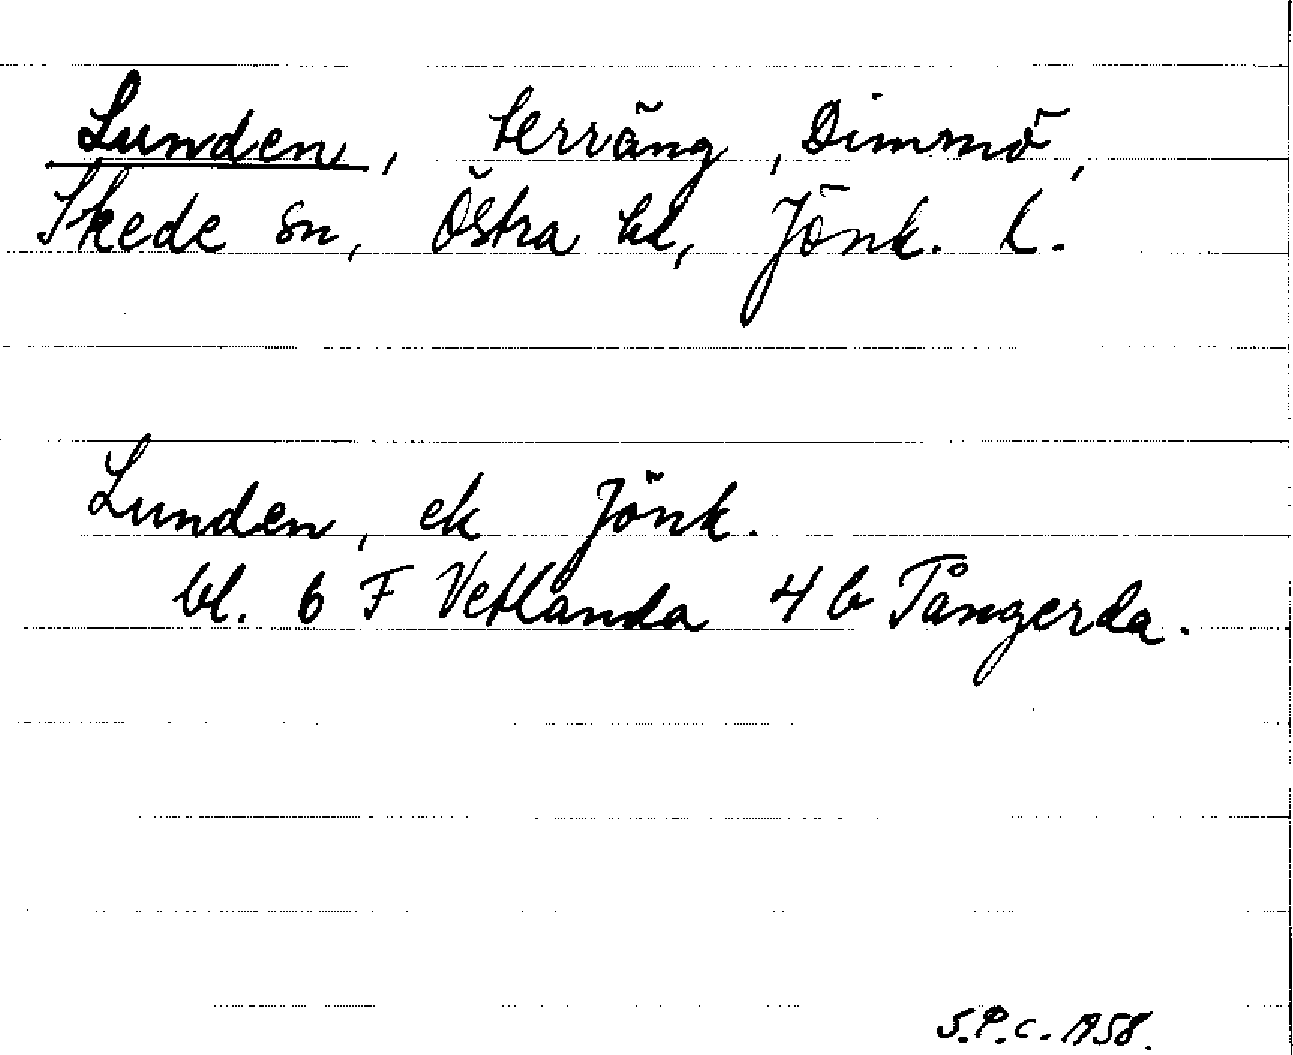 Lunden, terräng, Dimmö,
Skede sn, Östra hd, Jönk. l.
Lunden, ek Jönk.
bl. 6 F Vetlanda 4 b Tångerda.
S.P.C. 1958.